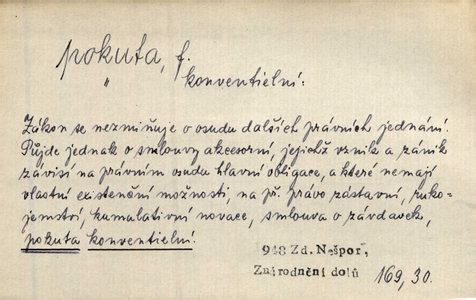 pokuta, f.
" konventielní:
Zákon se nezmiňuje o osudu dalších právních jednání.
Půjde jednak o smlouvy akcesorní, jejichž vznik a zánik
závisí na právním osudu hlavní obligace, a které nemají
vlastní existenční možnosti, na př. právo zástavní, ruko-
jemství, kumulativní novace, smlouva o závdavek,
pokuta konventielní!
948 Zd. Nešpor,
Znárodnění dolů 169, 30.